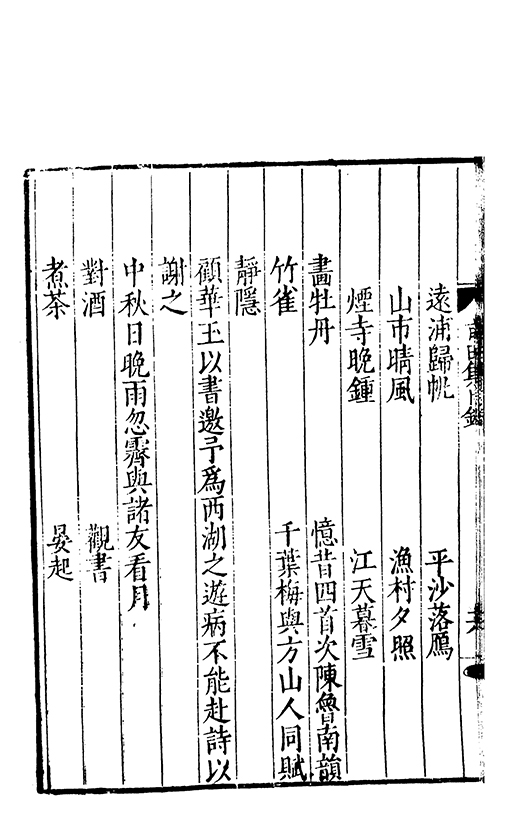 遠浦歸帆　平沙落鴈
山市晴風　漁村夕照
煙寺晚鍾　江天暮雪
畵牡丹　憶昔四首次陳魯南韻
竹雀　千葉梅與方山人同賦
靜隱
顧華玉以書邀予爲西湖之遊病不能赴詩以
謝之
中秋日晚雨忽霽與諸友看月
對酒　觀書
煮茶　晏起